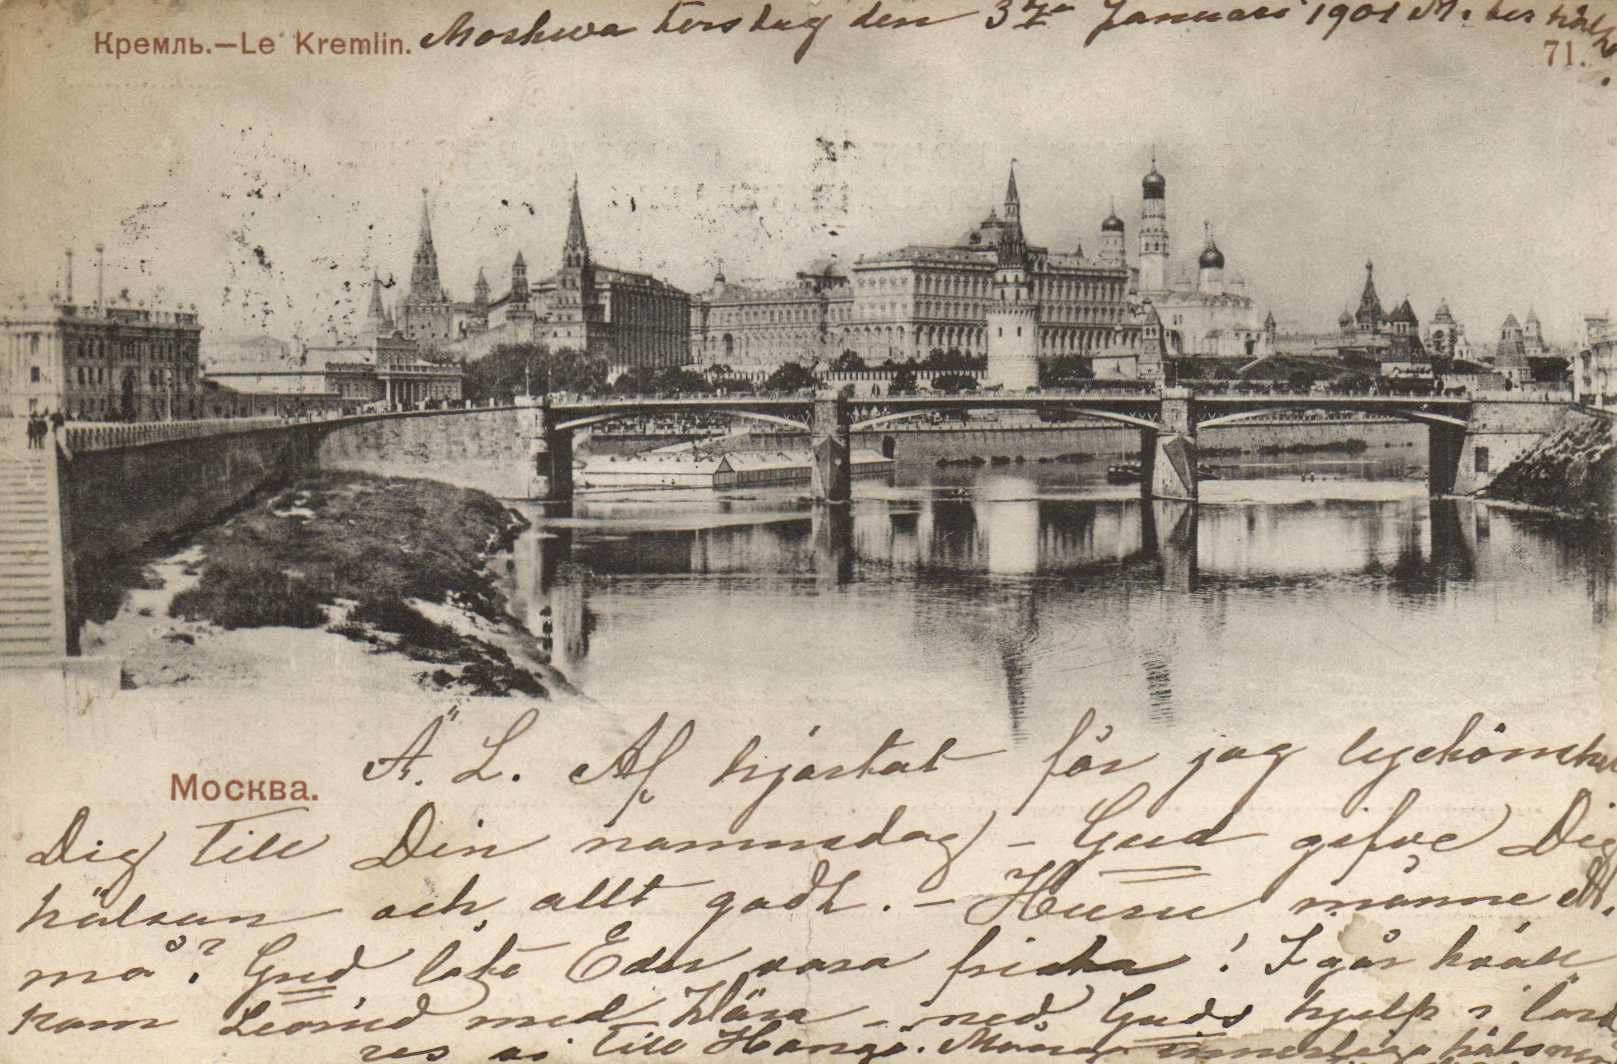 Кремль.—Le Kremlin. Moskwa torsdag den 3 Januari 1901
71.
Ä. L. Af hjärtat får jag lyckönska
Москва.
Dig till Din namnsdag - Gud gifve Dig
hälsan och allt godt. - Huru månne M.
må? Gud låte Eder vara friska! I går kväll
kom Leonid med Klära - med Guds hjelp i lörd
res vi till Hangö. Många innerliga hälsn